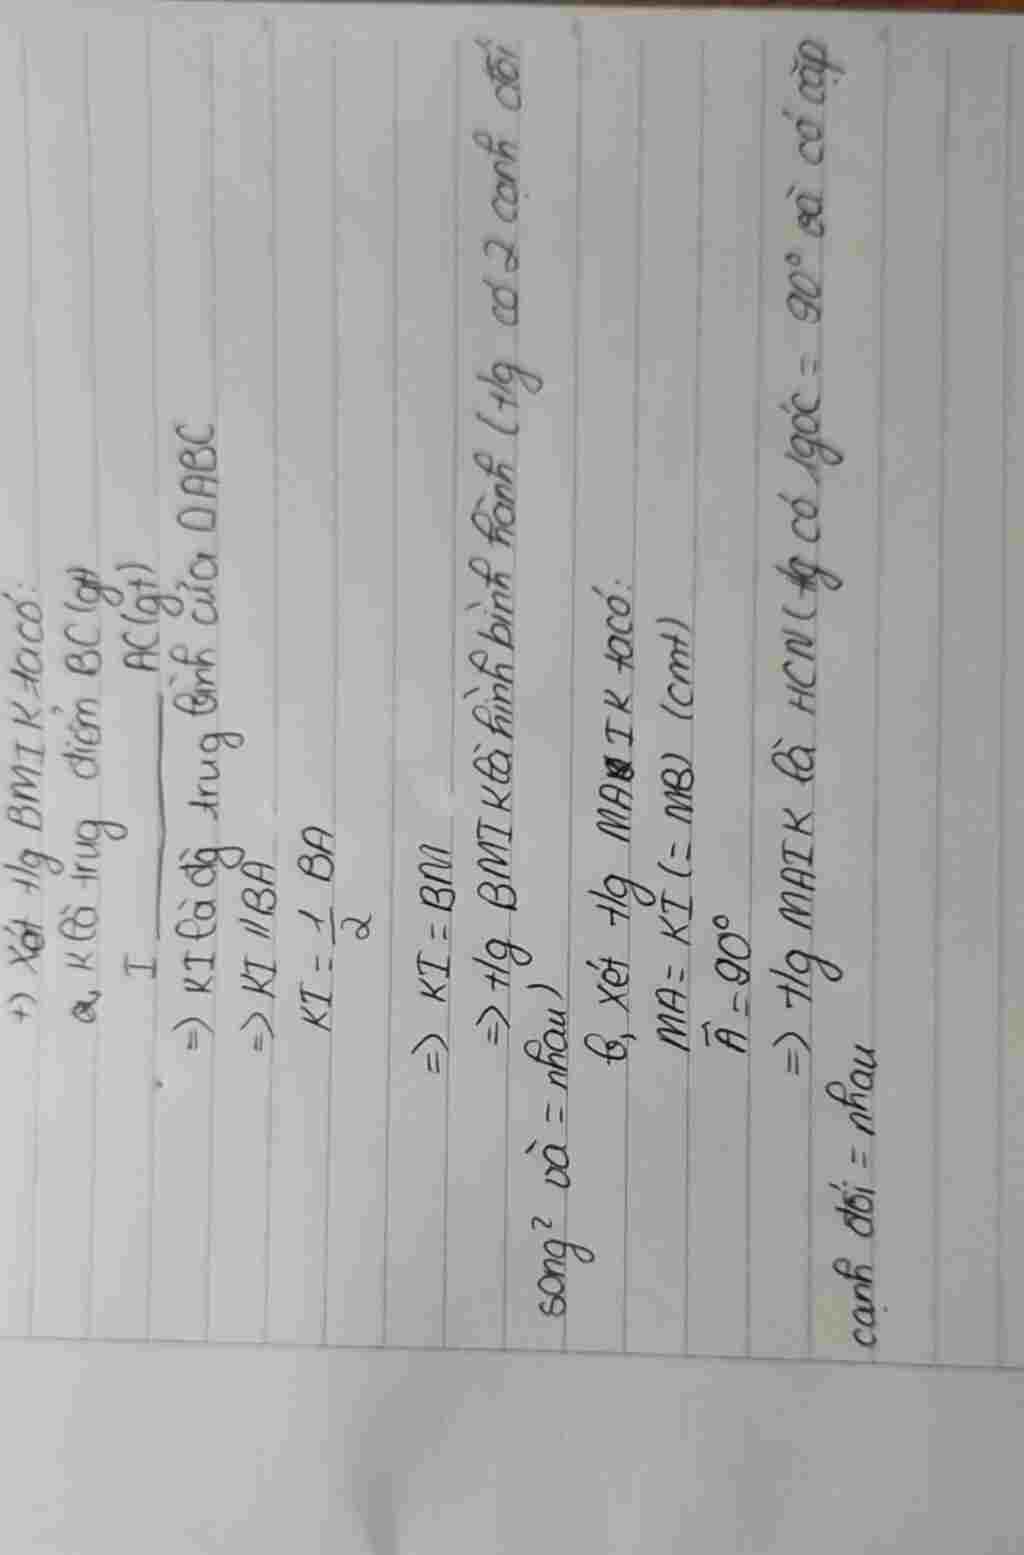 +) Xét t/g BMIK ta có:
a, K là trug điểm BC (gt)
I ——— AC (gt)
=) KI là đg trug bình của ΔABC
=) KI // BA
KI = 1/2 BA
=) KI = BM
=) t/g BMIK là hình bình hành (t/g có 2 cạnh đối
song² và = nhau)
b, Xét t/g MAIK ta có:
MA = KI (= MB) (cmt)
Â = 90°
=) t/g MAIK là HCN (t/g có 1 góc = 90° và có cặp
cạnh đối = nhau